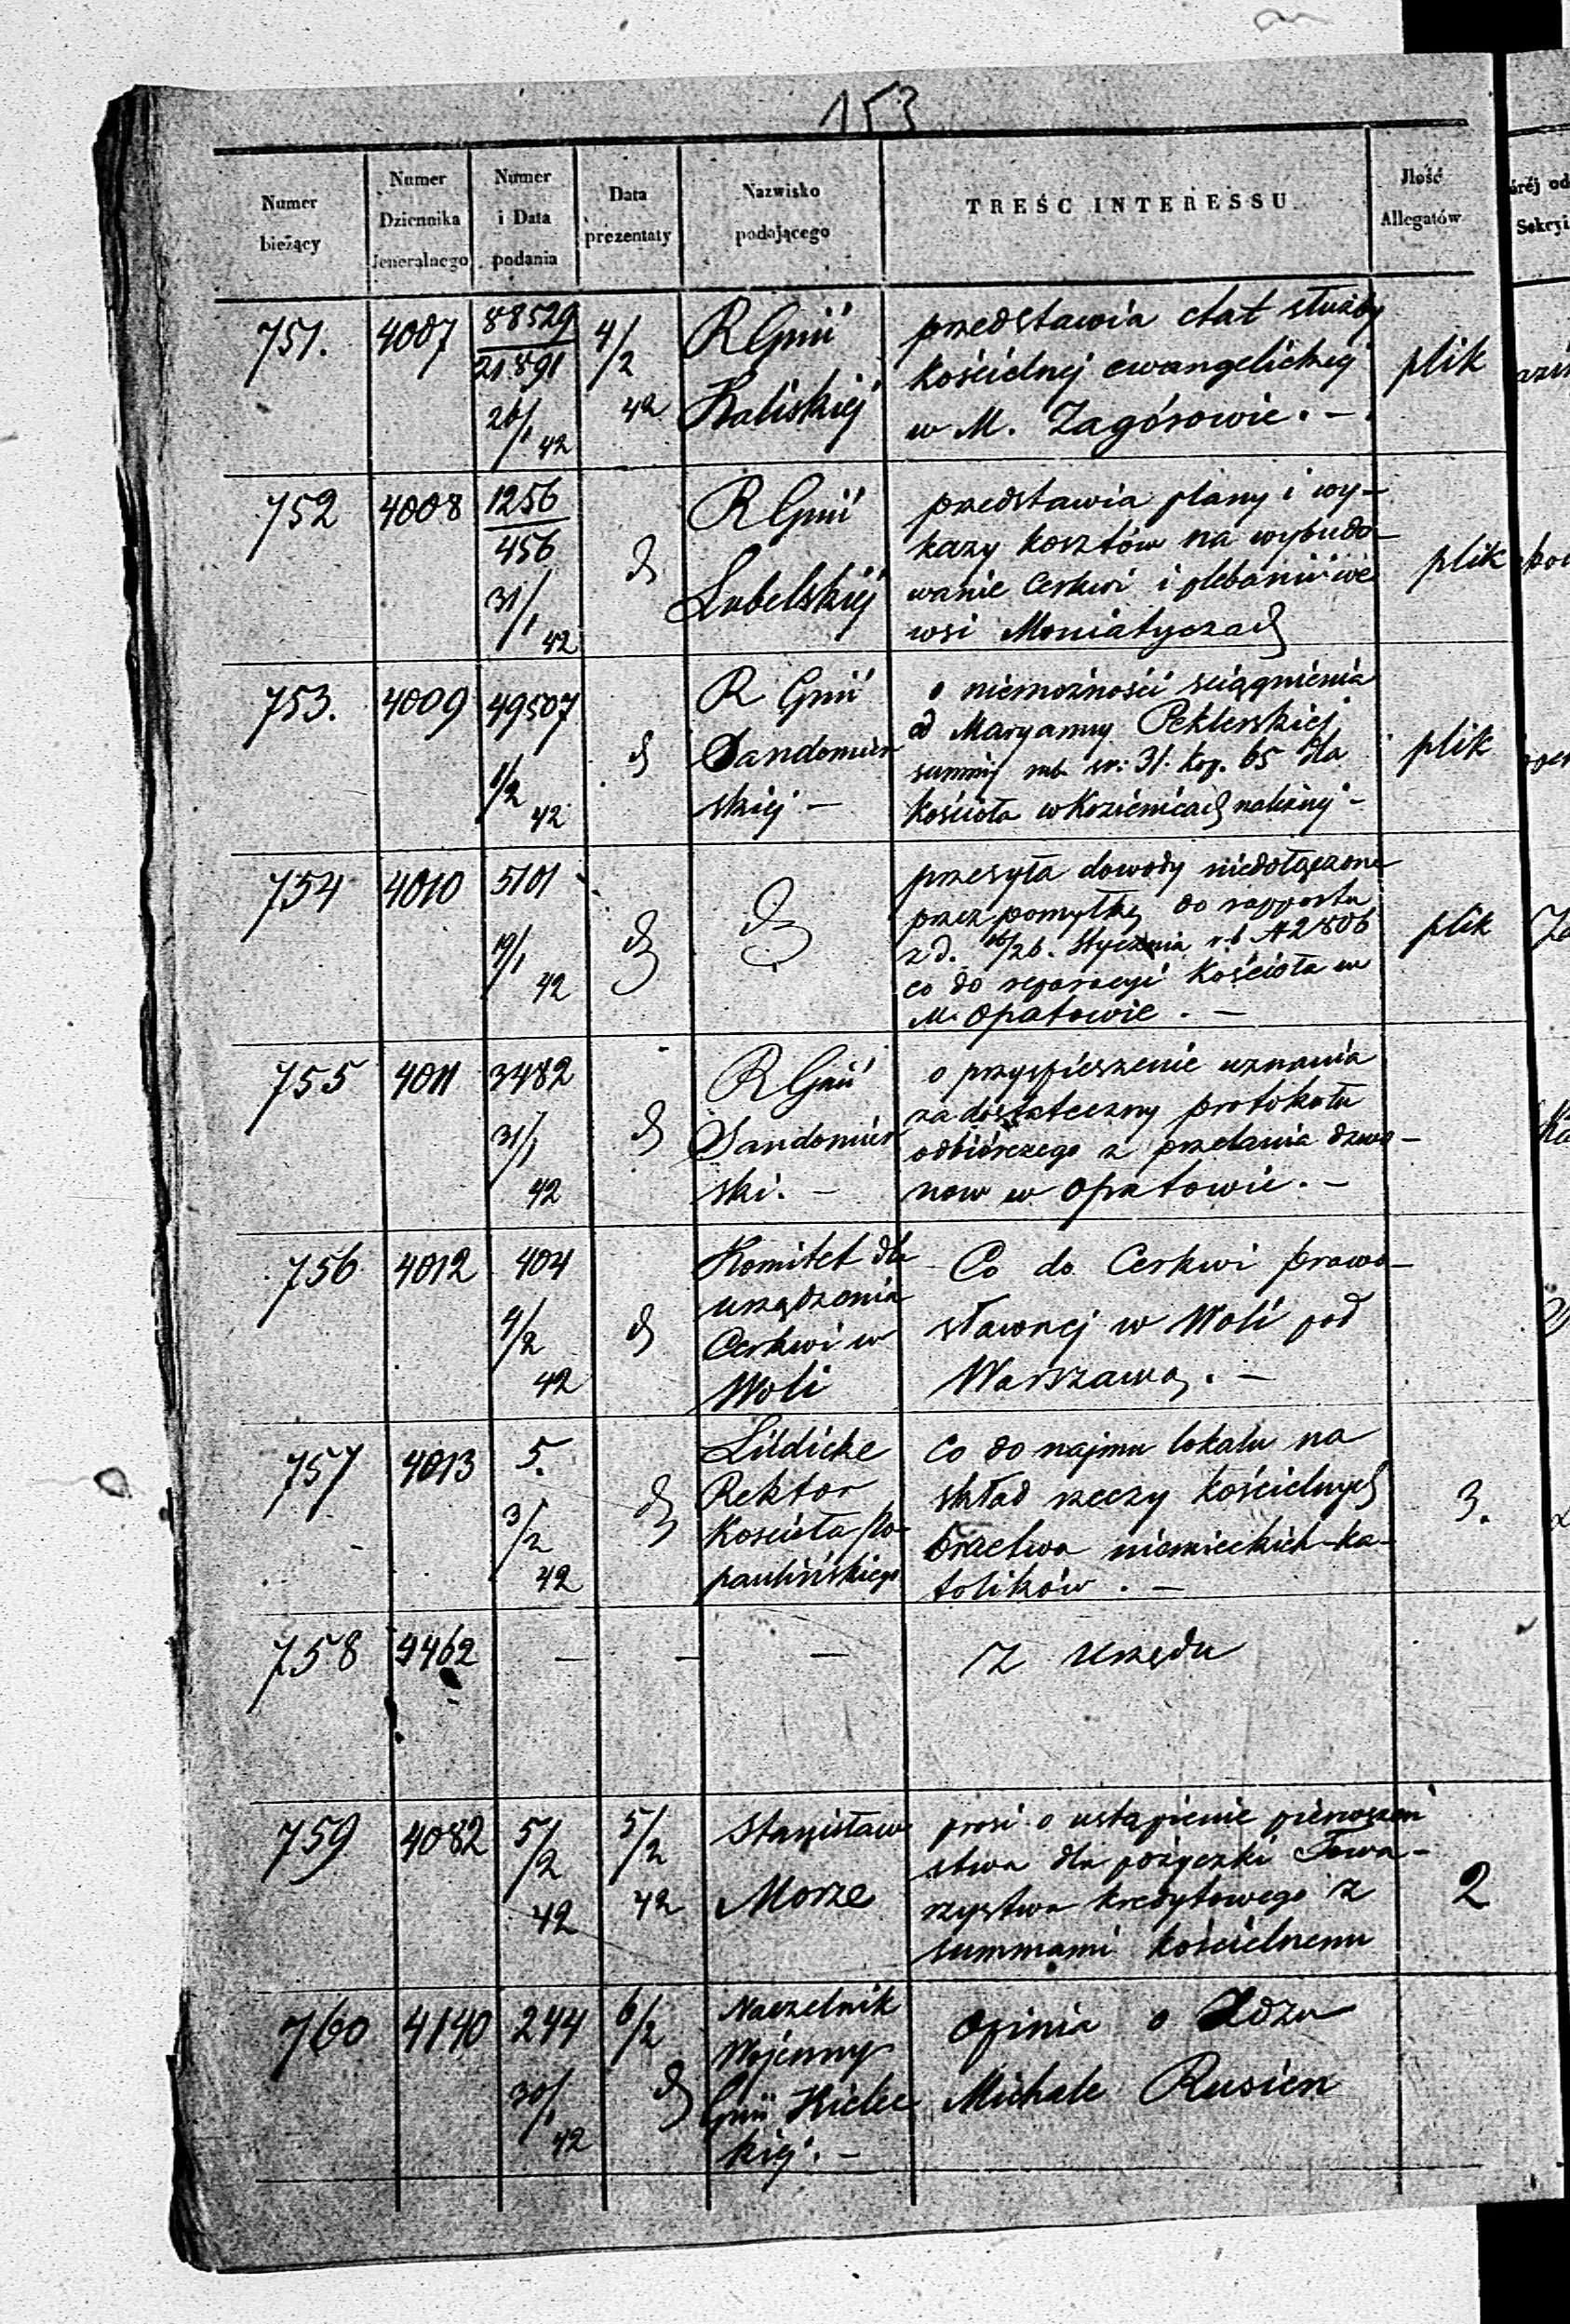 153
Numer bieżący
Numer Dziennika Jeneralnego
Numer i Data podania
Data prezentaty
Nazwisko podającego
TREŚĆ INTERESSU
Ilość Allegatów
751. 4007 88529 / 21891 26/1 42 4/2 42
RGnii
Kaliskiéj
przedstawia etat służby
kościelnéj ewangelickiéj
w M. Zagórowie. –
plik
752 4008 1256 / 456 31/1 42 d
RGnii
Lubelskiéj
przedstawia plany i wy-
kazy kosztów na wybudo-
wanie Cerkwi i plebanii we
wsi Moniatyczach
plik
753. 4009 49507 1/2 42 d
R Gnii
Sandomier
skiéj –
o niemożności ściągnienia
od Maryanny Peklerskiej
summy rub. sr: 31. kop. 65 dla
Kościoła w Kozienicach należnéj –
plik
754 4010 5101 19/1 42 d
d
przesyła dowody niedołączone
przez pomyłkę do rapportu
z d. /26. Stycznia r.b. N 2806
co do reparacyi Kościoła w
M. Opatowie. –
plik
755 4011 3482 31/1 42 d
RGnii
Sandomier
ski. –
o przyspieszenie uznania
za dostateczny protokołu
odbiórczego z przelania dzwo-
now w Opatowie. –
756 4012 404 4/2 42 d
Komitet dla
urządzenia
Cerkwi w
Woli
Co do Cerkwi prawo-
sławnej w Woli pod
Warszawą. –
757 4013 5. 3/2 42 d
Lüdicke
Rektor
Kościoła Po-
paulińskiego
Co do najmu lokalu na
skład rzeczy kościelnych
bractwa niemieckich-ka-
tolików. –
3.
758 4462 – – –
Z Urzędu
759 4082 5/2 42 5/2 42
Stanisław
Morze
prosi o ustąpienie pierwszeń
stwa dla pożyczki Towa-
rzystwa kredytowego z
summami kościelnemu
2
760 4140 244 30/1 42 6/2 d
Naczelnik
Wojenny
Gnii Kielec
kiéj. –
Opinia o Xdzu
Michale Rusien